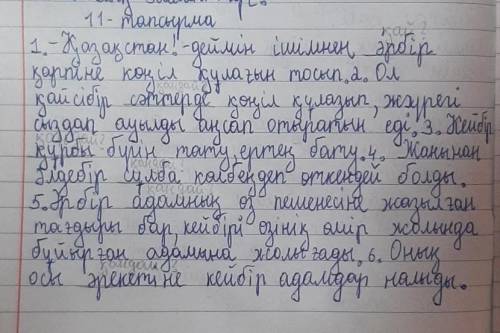 11-тапсырма
қай?
1.-Қазақстан!-деймін ішімнен, әрбір
қарпіне көңіл құлағын тосып.2. Ол
қандай?
қайсібір сәттерде көңіл құлазып, жүрегі
сыздап ауылды аңсап отыратын еді.3. Кейбір
құрбы бүгін тату, ертең бату.4. Жанынан
қандай?
әлдебір сұлба көлбеңдеп өткендей болды.
қандай?
5.Әрбір адамның өз пешенесіне жазылған
тағдыры бар, кейбірі өзінің өмір жолында
бұйырған адамына жолығады.6. Оның
қандай?
осы әрекетіне кейбір адамдар налыды.